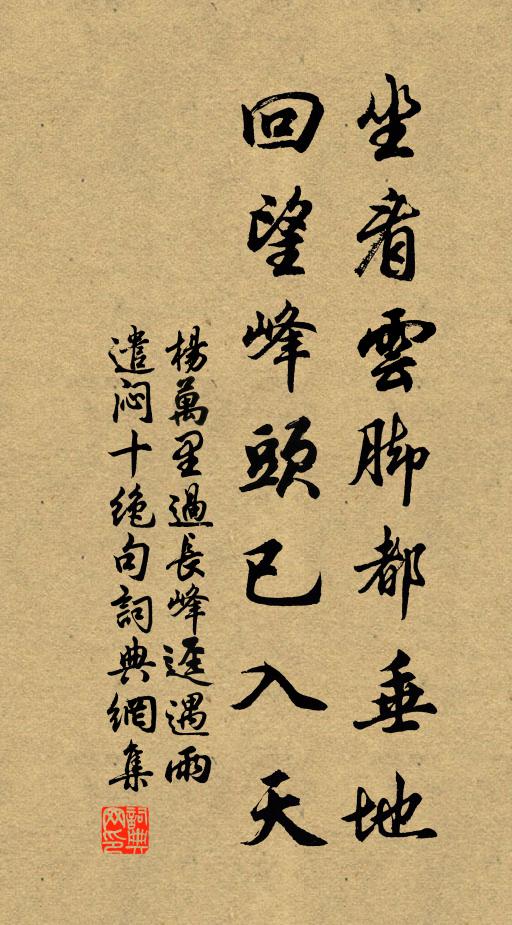 坐看雲脚都垂地
回望峰頭已入天
楊萬里過長峰逕遇雨
遣悶十絶句詞典網集
詞典網印